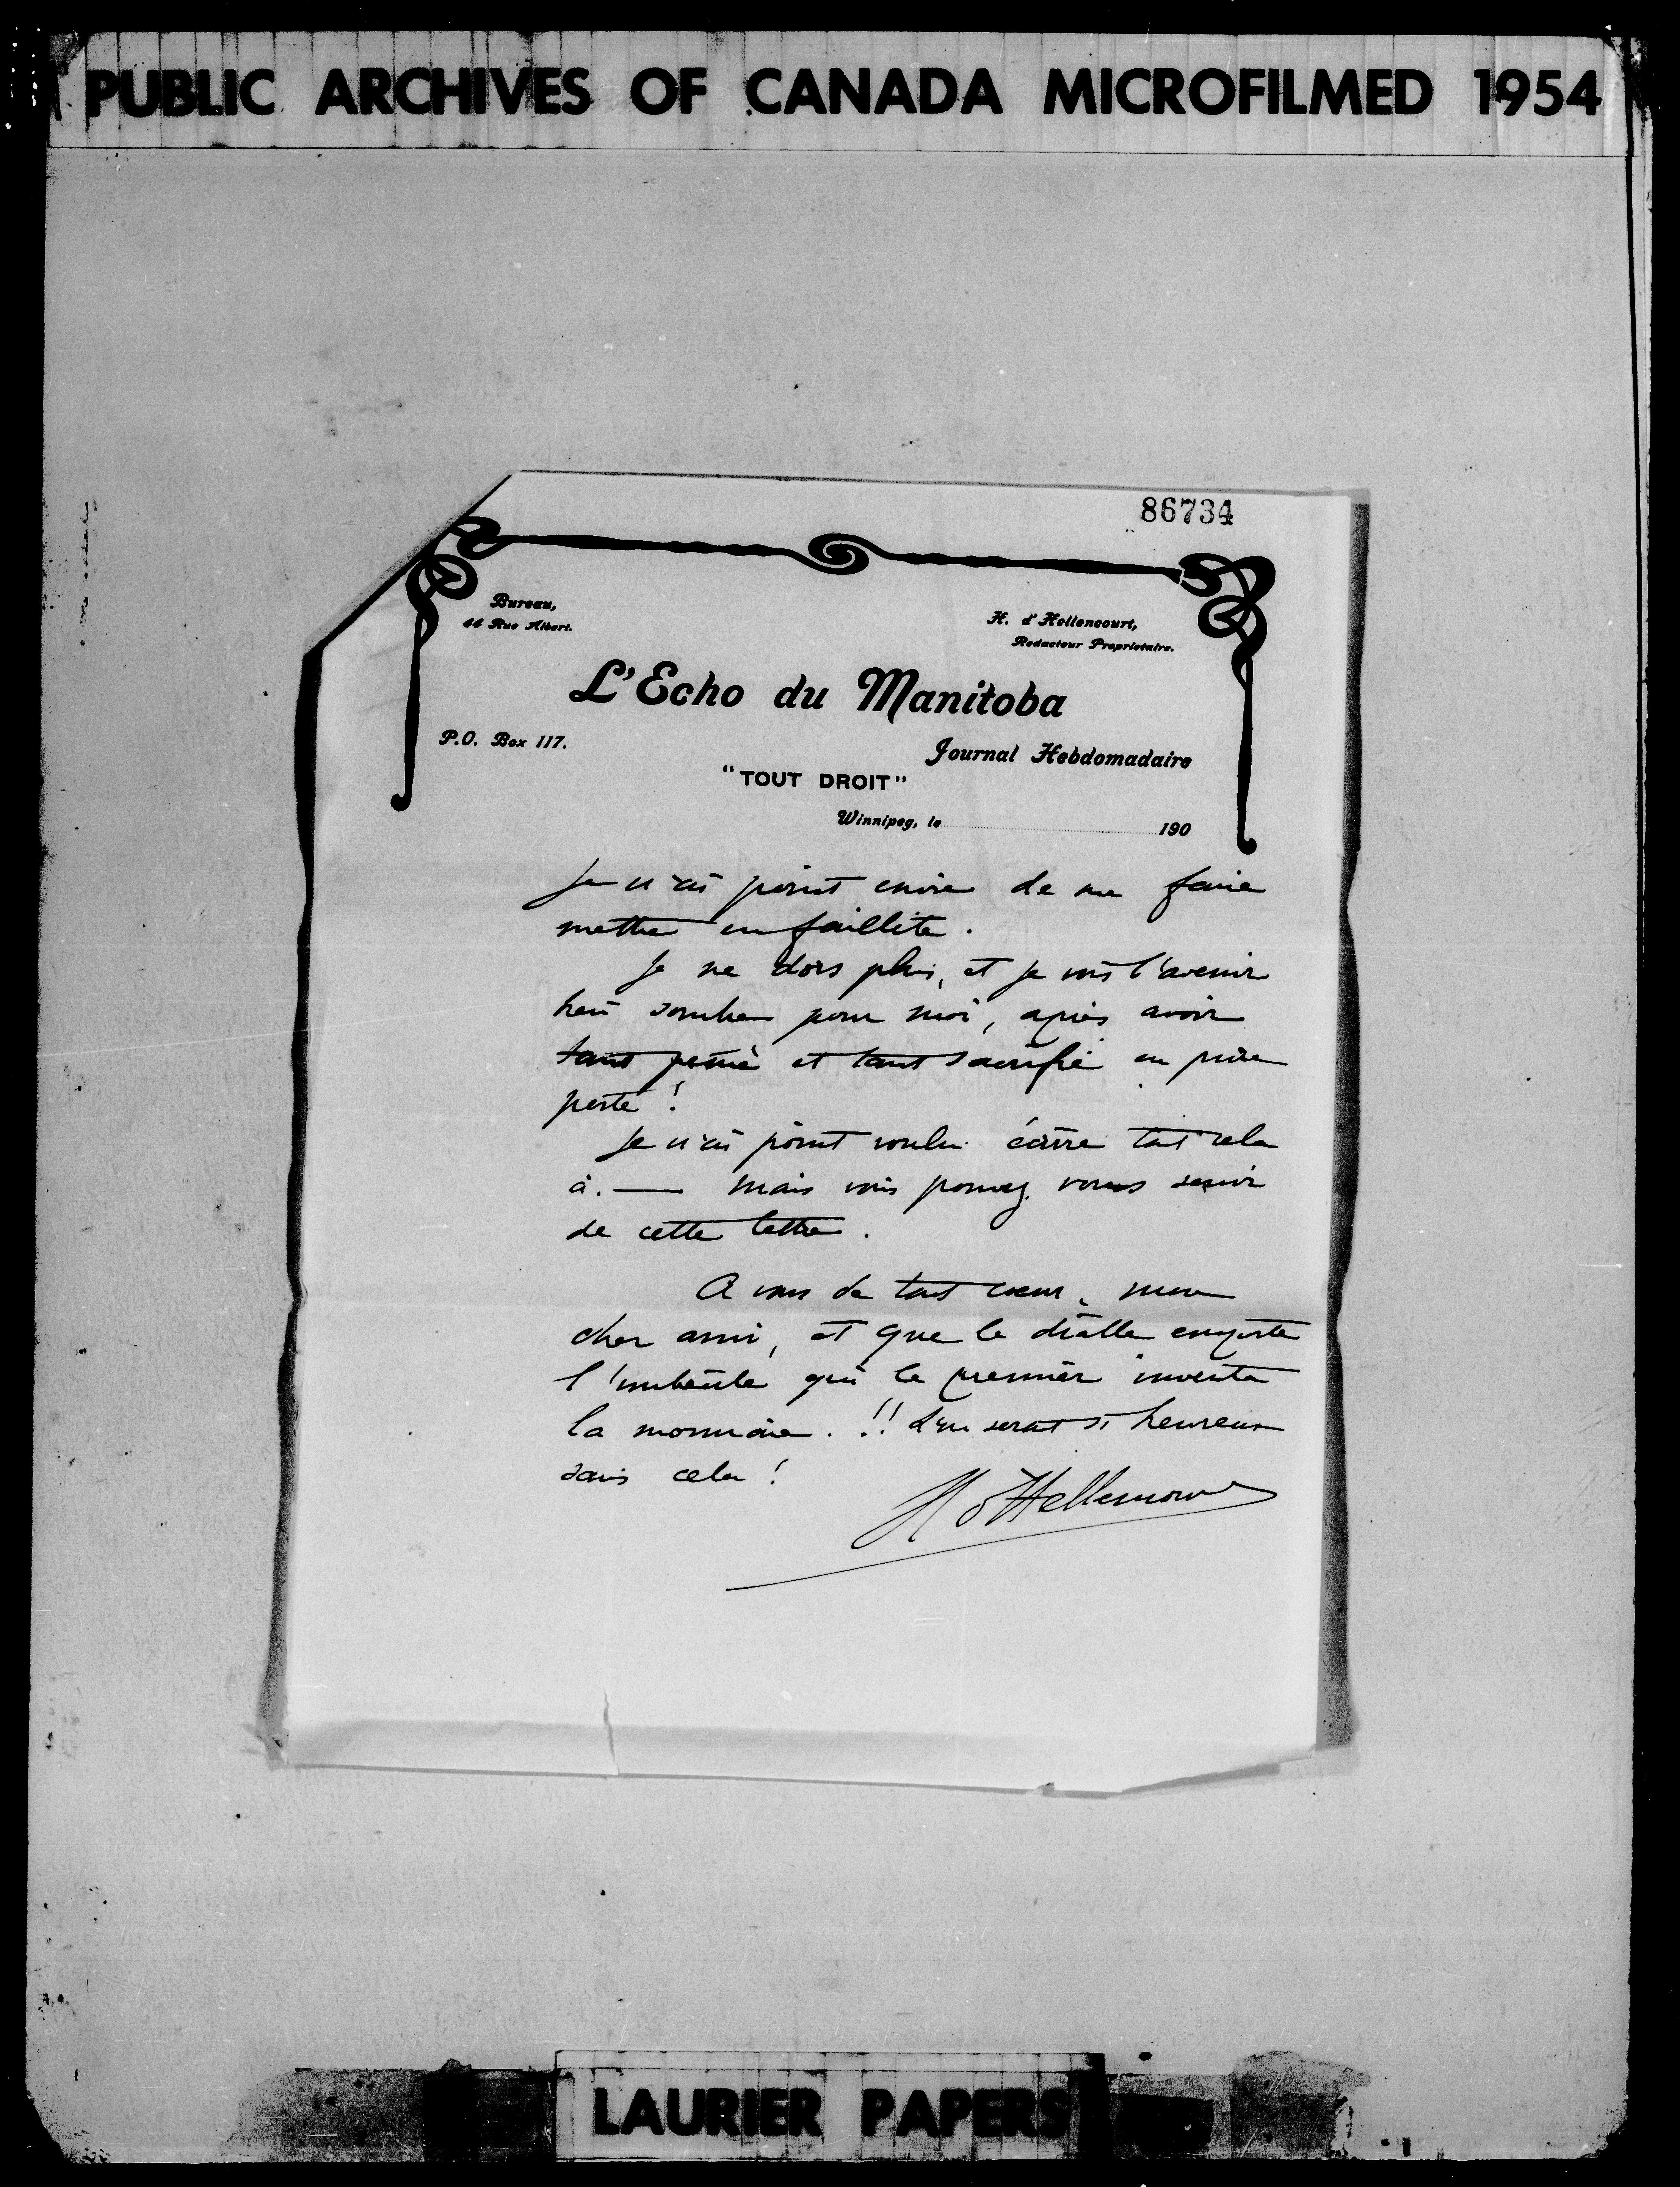 PUBLIC ARCHIVES OF CANADA MICROFILMED 1954
86734
Bureau,
44 Rue Albert.
H. d'Hellencourt,
Redacteur Proprietaire.
L'Echo du Manitoba
P.O. Box 117.
Journal Hebdomadaire
"TOUT DROIT"
Winnipeg, le 190
Je n'ai point envie de me faire
mettre en faillite.
Je ne dors plus, et je vois l'avenir
bien sombre pour moi, après avoir
tant peiné et tant sacrifié en pure
perte !
Je n'ai point voulu écrire tout cela
à. — Mais vous pouvez vous servir
de cette lettre.
A vous de tout coeur, mon
cher ami, et que le diable emporte
l'imbécile qui le premier inventa
la monnaie. !! L'on serait si heureux
sans cela !
H d'Hellencourt
LAURIER PAPERS